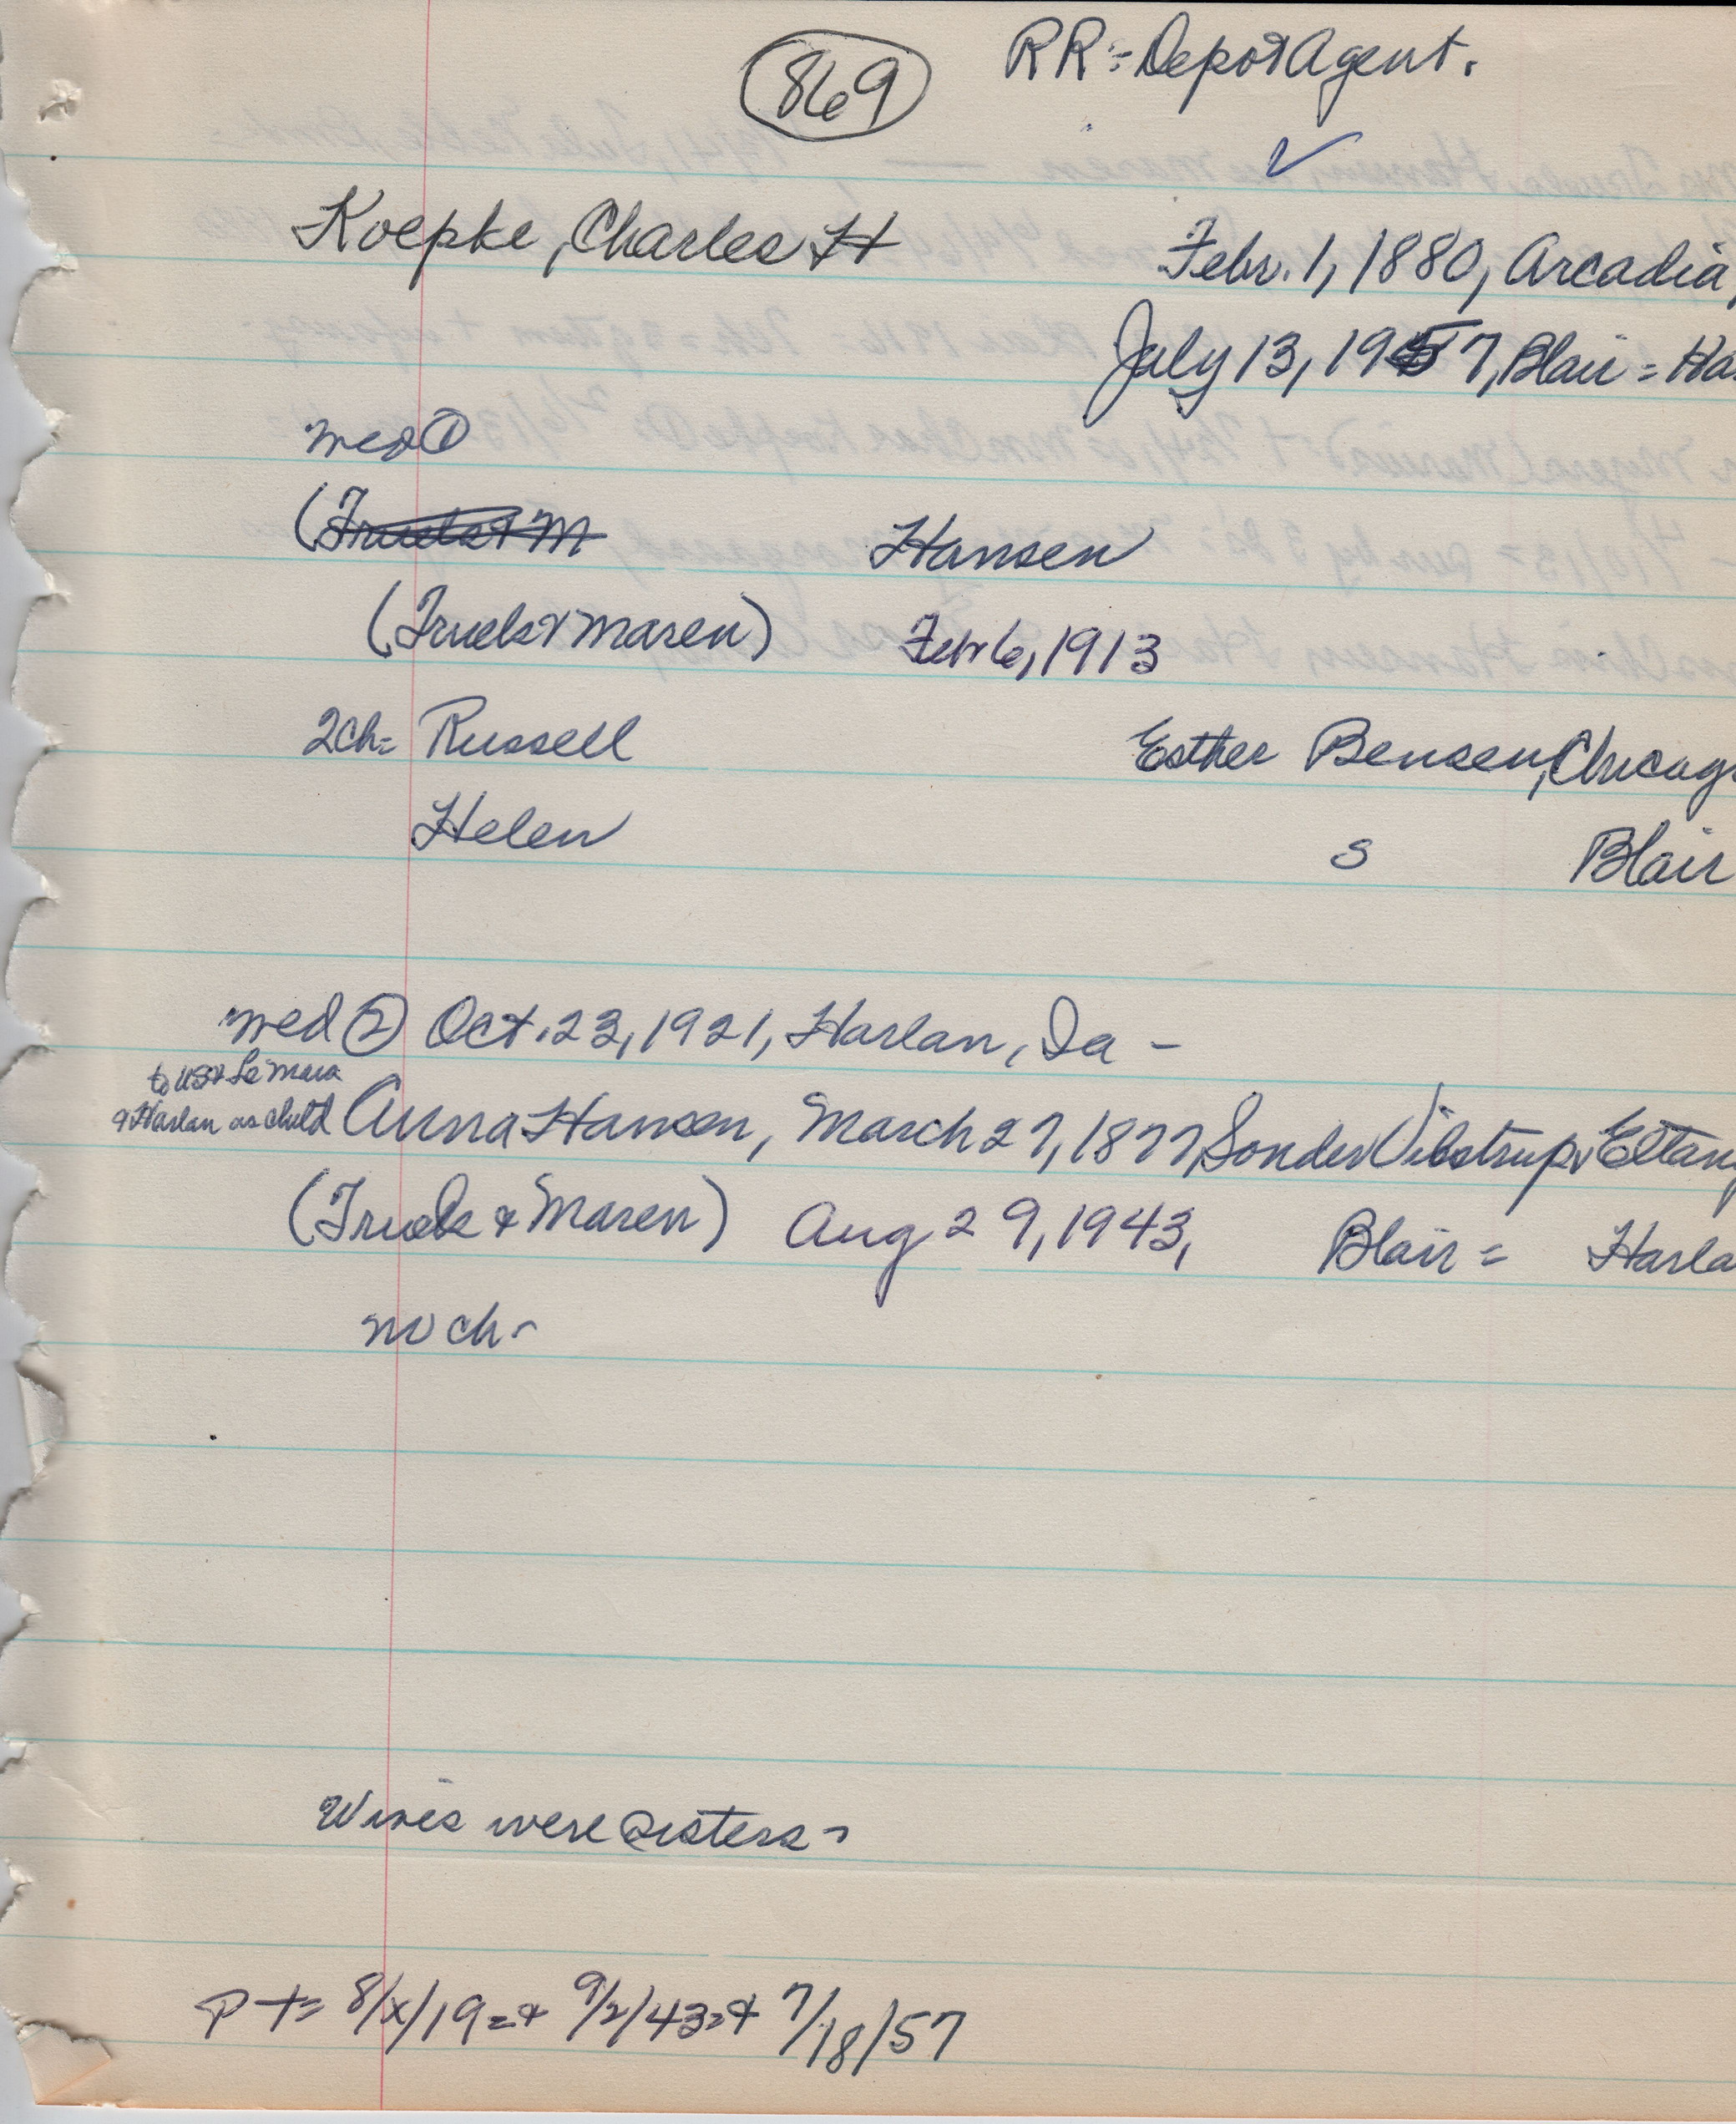 869 RR = Depot Agent.
✓
Koepke, Charles H Febr. 1, 1880, Arcadia,
July 13, 1957, Blair = Ha
med ①
( Hansen
(Truels & Maren) Febr 6, 1913
2ch = Russell Esther Bensen, Chicag
Helen s Blair
med ② Oct. 23, 1921, Harlan, Ia -
to US & Le Mars
& Harlan as child Anna Hansen, March 27, 1877, Sonder Vilstrup, Eltang
(Truels & Maren) Aug 29, 1943, Blair = Harla
no ch -
Wives were sisters -
P T = 8/x/19 = & 9/2/43 = & 7/18/57